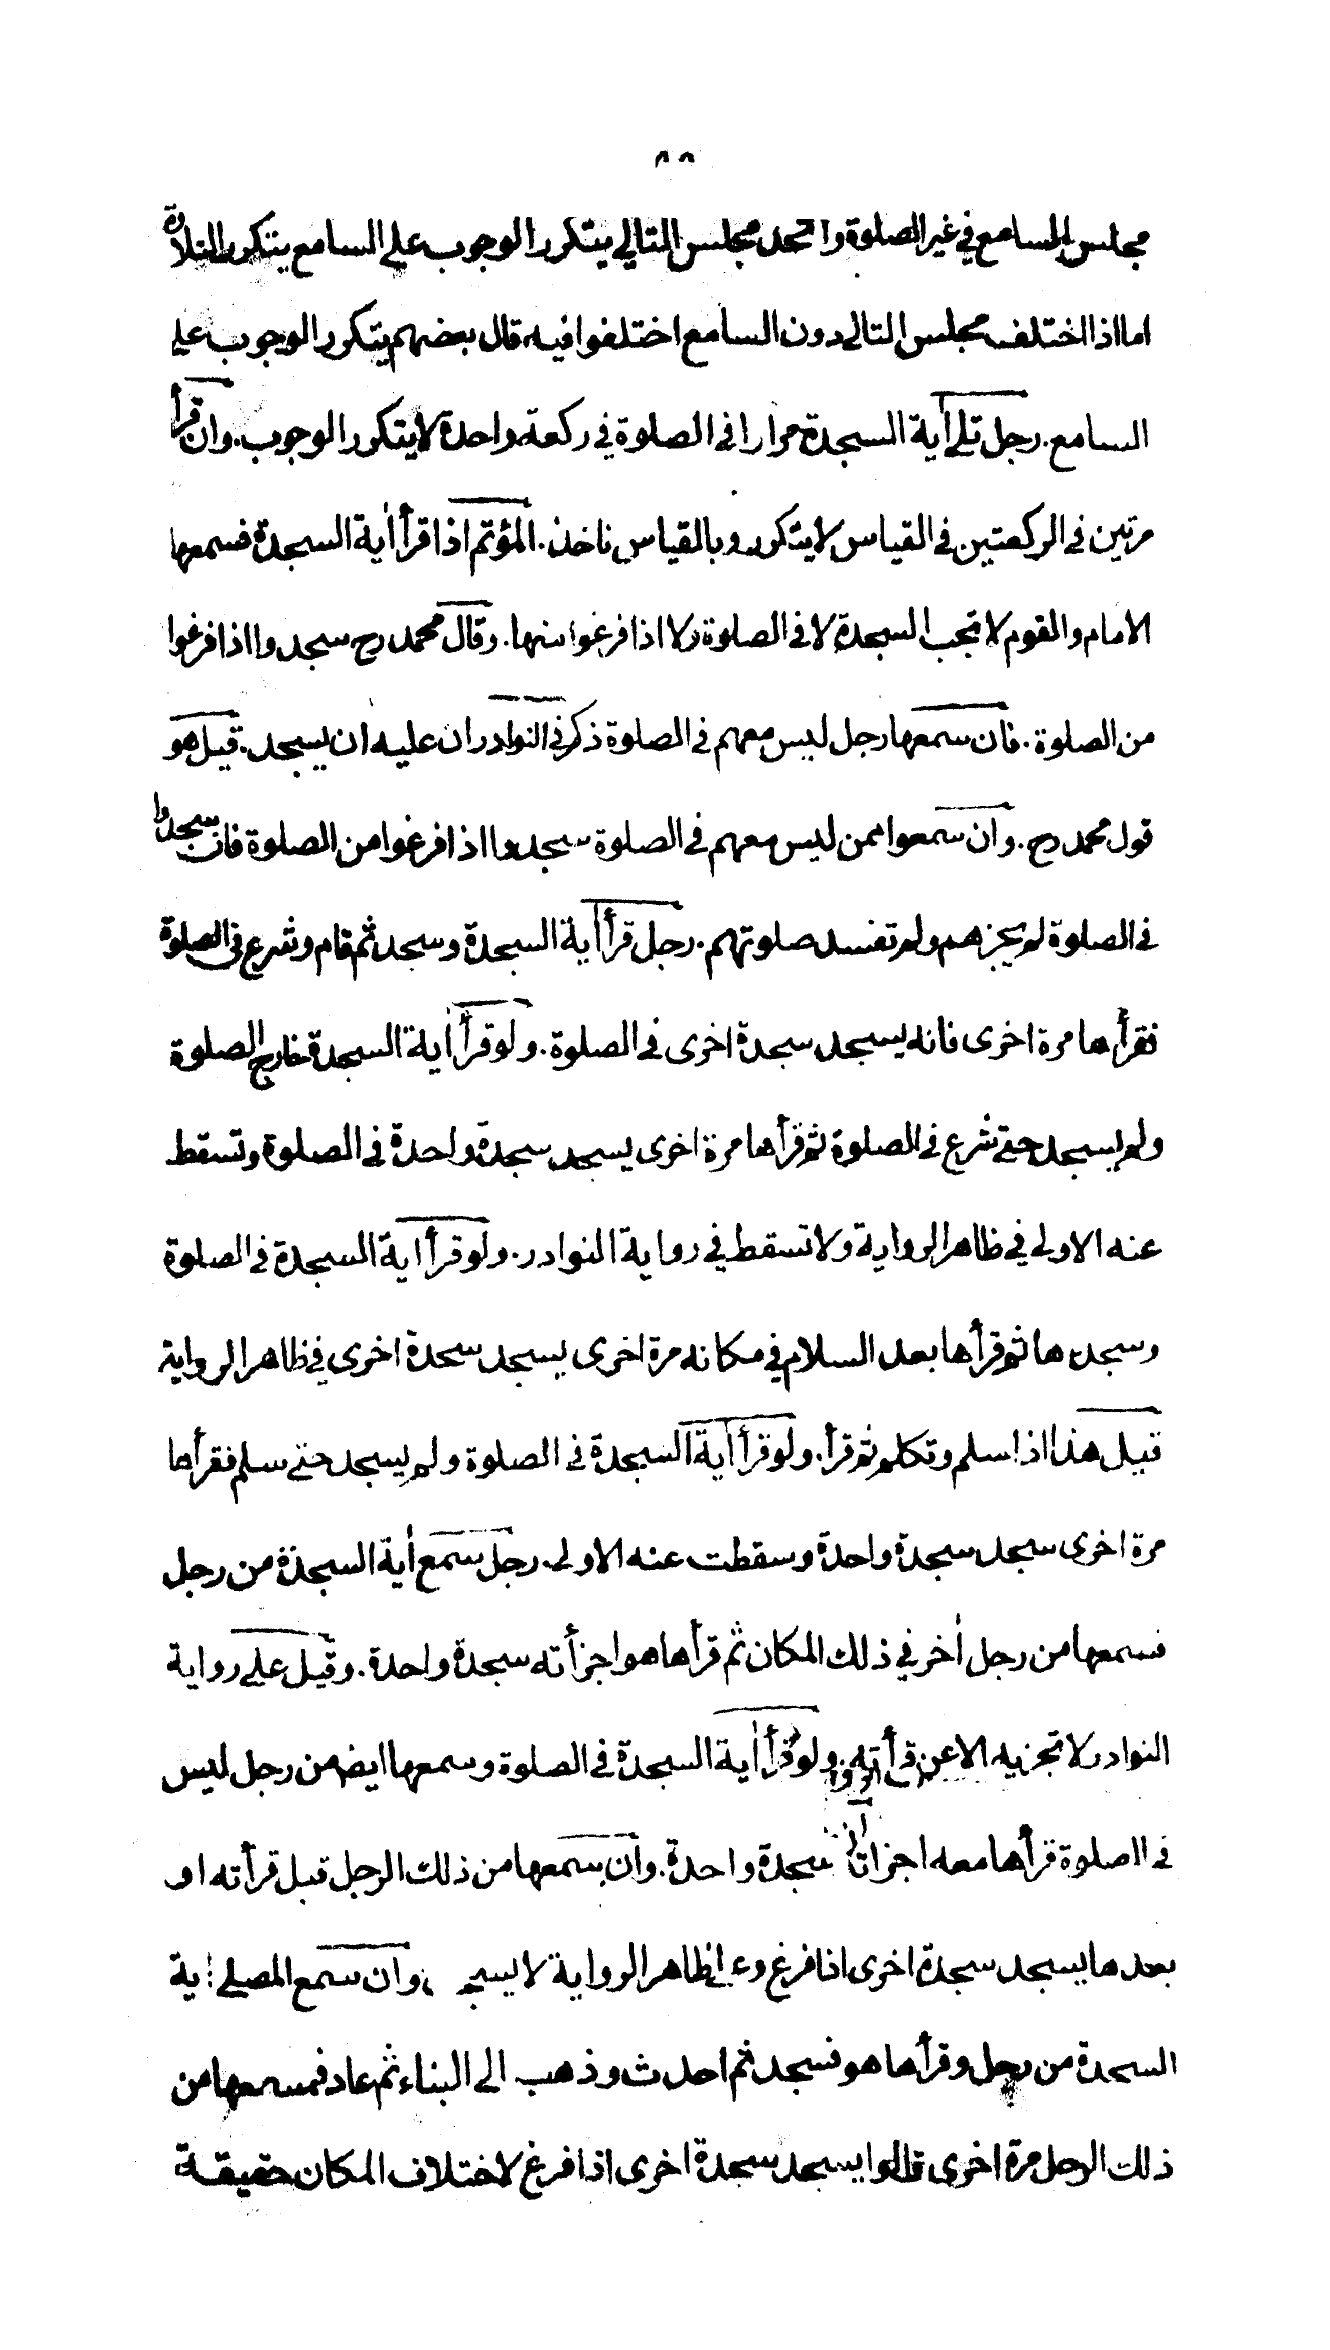 ٨٨
مجلس السامع في غير الصلوة واتحد مجلس التالي يتكرر الوجوب على السامع بتكرر التلاوة
اما اذا اختلف مجلس التالي دون السامع اختلفوا فيه قال بعضهم يتكرر الوجوب على
السامع. رجل تلى أية السجدة مرارا في الصلوة في ركعة واحدة لا يتكرر الوجوب. وان قرأ
مرتين في الركعتين في القياس لا يتكرر وبالقياس ناخذ. المؤتم اذا قرأ أية السجدة فسمعها
الامام والقوم لا تجب السجدة لا في الصلوة ولا اذا فرغوا منها. وقال محمد رح سجدوا اذا فرغوا
من الصلوة. فان سمعها رجل ليس معهم في الصلوة ذكر في النوادر ان عليه ان يسجد. قيل هو
قول محمد رح. وان سمعوا ممن ليس معهم في الصلوة سجدوا اذا فرغوا من الصلوة فان سجدوا
في الصلوة لم يجزهم ولم تفسد صلوتهم. رجل قرأ أية السجدة وسجد ثم قام وشرع في الصلوة
فقرأها مرة اخرى فانه يسجد سجدة اخرى في الصلوة. ولو قرأ أية السجدة خارج الصلوة
ولم يسجد حتى شرع في الصلوة ثم قرأها مرة اخرى يسجد سجدة واحدة في الصلوة وتسقط
عنه الاولى في ظاهر الرواية ولا تسقط في رواية النوادر. ولو قرأ اية السجدة في الصلوة
وسجدها ثم قرأها بعد السلام في مكانه مرة اخرى يسجد سجدة اخرى في ظاهر الرواية
قيل هذا اذا سلم وتكلم ثم قرأ. ولو قرأ أية السجدة في الصلوة ولم يسجد حتى سلم فقرأها
مرة اخرى سجد سجدة واحدة وسقطت عنه الاولى. رجل سمع أية السجدة من رجل
فسمعها من رجل أخر في ذلك المكان ثم قرأها هو اجزأته سجدة واحدة. وقيل على رواية
النوادر لا تجزيه الا عن قرأته. ولو قرأ أية السجدة في الصلوة وسمعها ايضا من رجل ليس
في الصلوة قرأها معه اجزاته سجدة واحدة. وان سمعها من ذلك الرجل قبل قرأته او
بعدها يسجد سجدة اخرى اذا فرغ وفي ظاهر الرواية لا يسجد. وان سمع المصلي أية
السجدة من رجل وقرأها هو فسجد ثم احدث وذهب الى البناء ثم عاد فسمعها من
ذلك الرجل مرة اخرى قالوا يسجد سجدة اخرى اذا فرغ لاختلاف المكان حقيقة